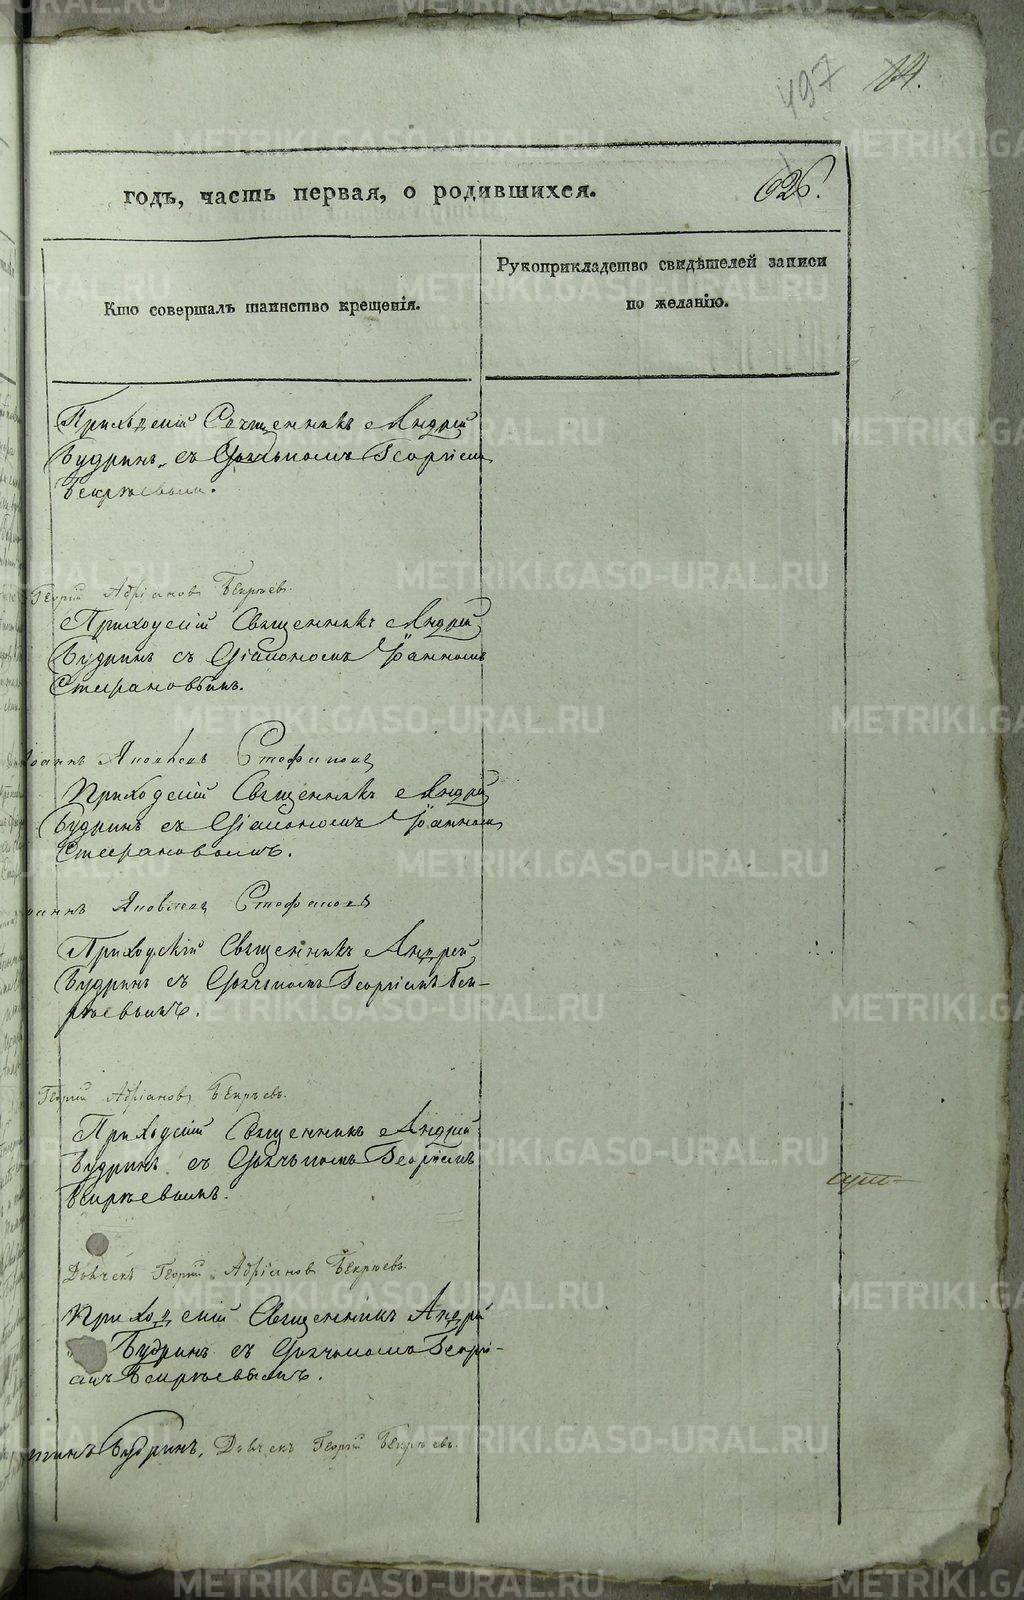 497
14.
годъ, часть первая, о родившихся.
626.
Кто совершалъ таинство крещенія.
Рукоприкладство свидѣтелей записи
по желанію.
Приходскій Священникъ Андрей
Будринъ съ Дьячкомъ Георгіемъ
Бекрѣевымъ.
Георгій Адріановъ Бекрѣевъ.
Приходскій Священникъ Андрей
Будринъ съ Діакономъ Іоанномъ
Стефановымъ.
Іоаннъ Яковлевъ Стефановъ
Приходскій Священникъ Андрей
Будринъ съ Діакономъ Іоанномъ
Стефановымъ.
Яковлевъ Стефановъ
Приходскій Священникъ Андрей
Будринъ съ Дьячкомъ Георгіемъ Бек-
рѣевымъ.
Георгій Адріановъ Бекрѣевъ.
Приходскій Священникъ Андрей
Будринъ съ Дьячкомъ Георгіемъ
Бекрѣевымъ.
Дьячекъ Георгій Адріановъ Бекрѣевъ.
Приходскій Священникъ Андрей
Будринъ съ Дьячкомъ Георгі-
емъ Бекрѣевымъ.
Будринъ, Дьячекъ Георгій Бекрѣевъ.
METRIKI.GASO-URAL.RU